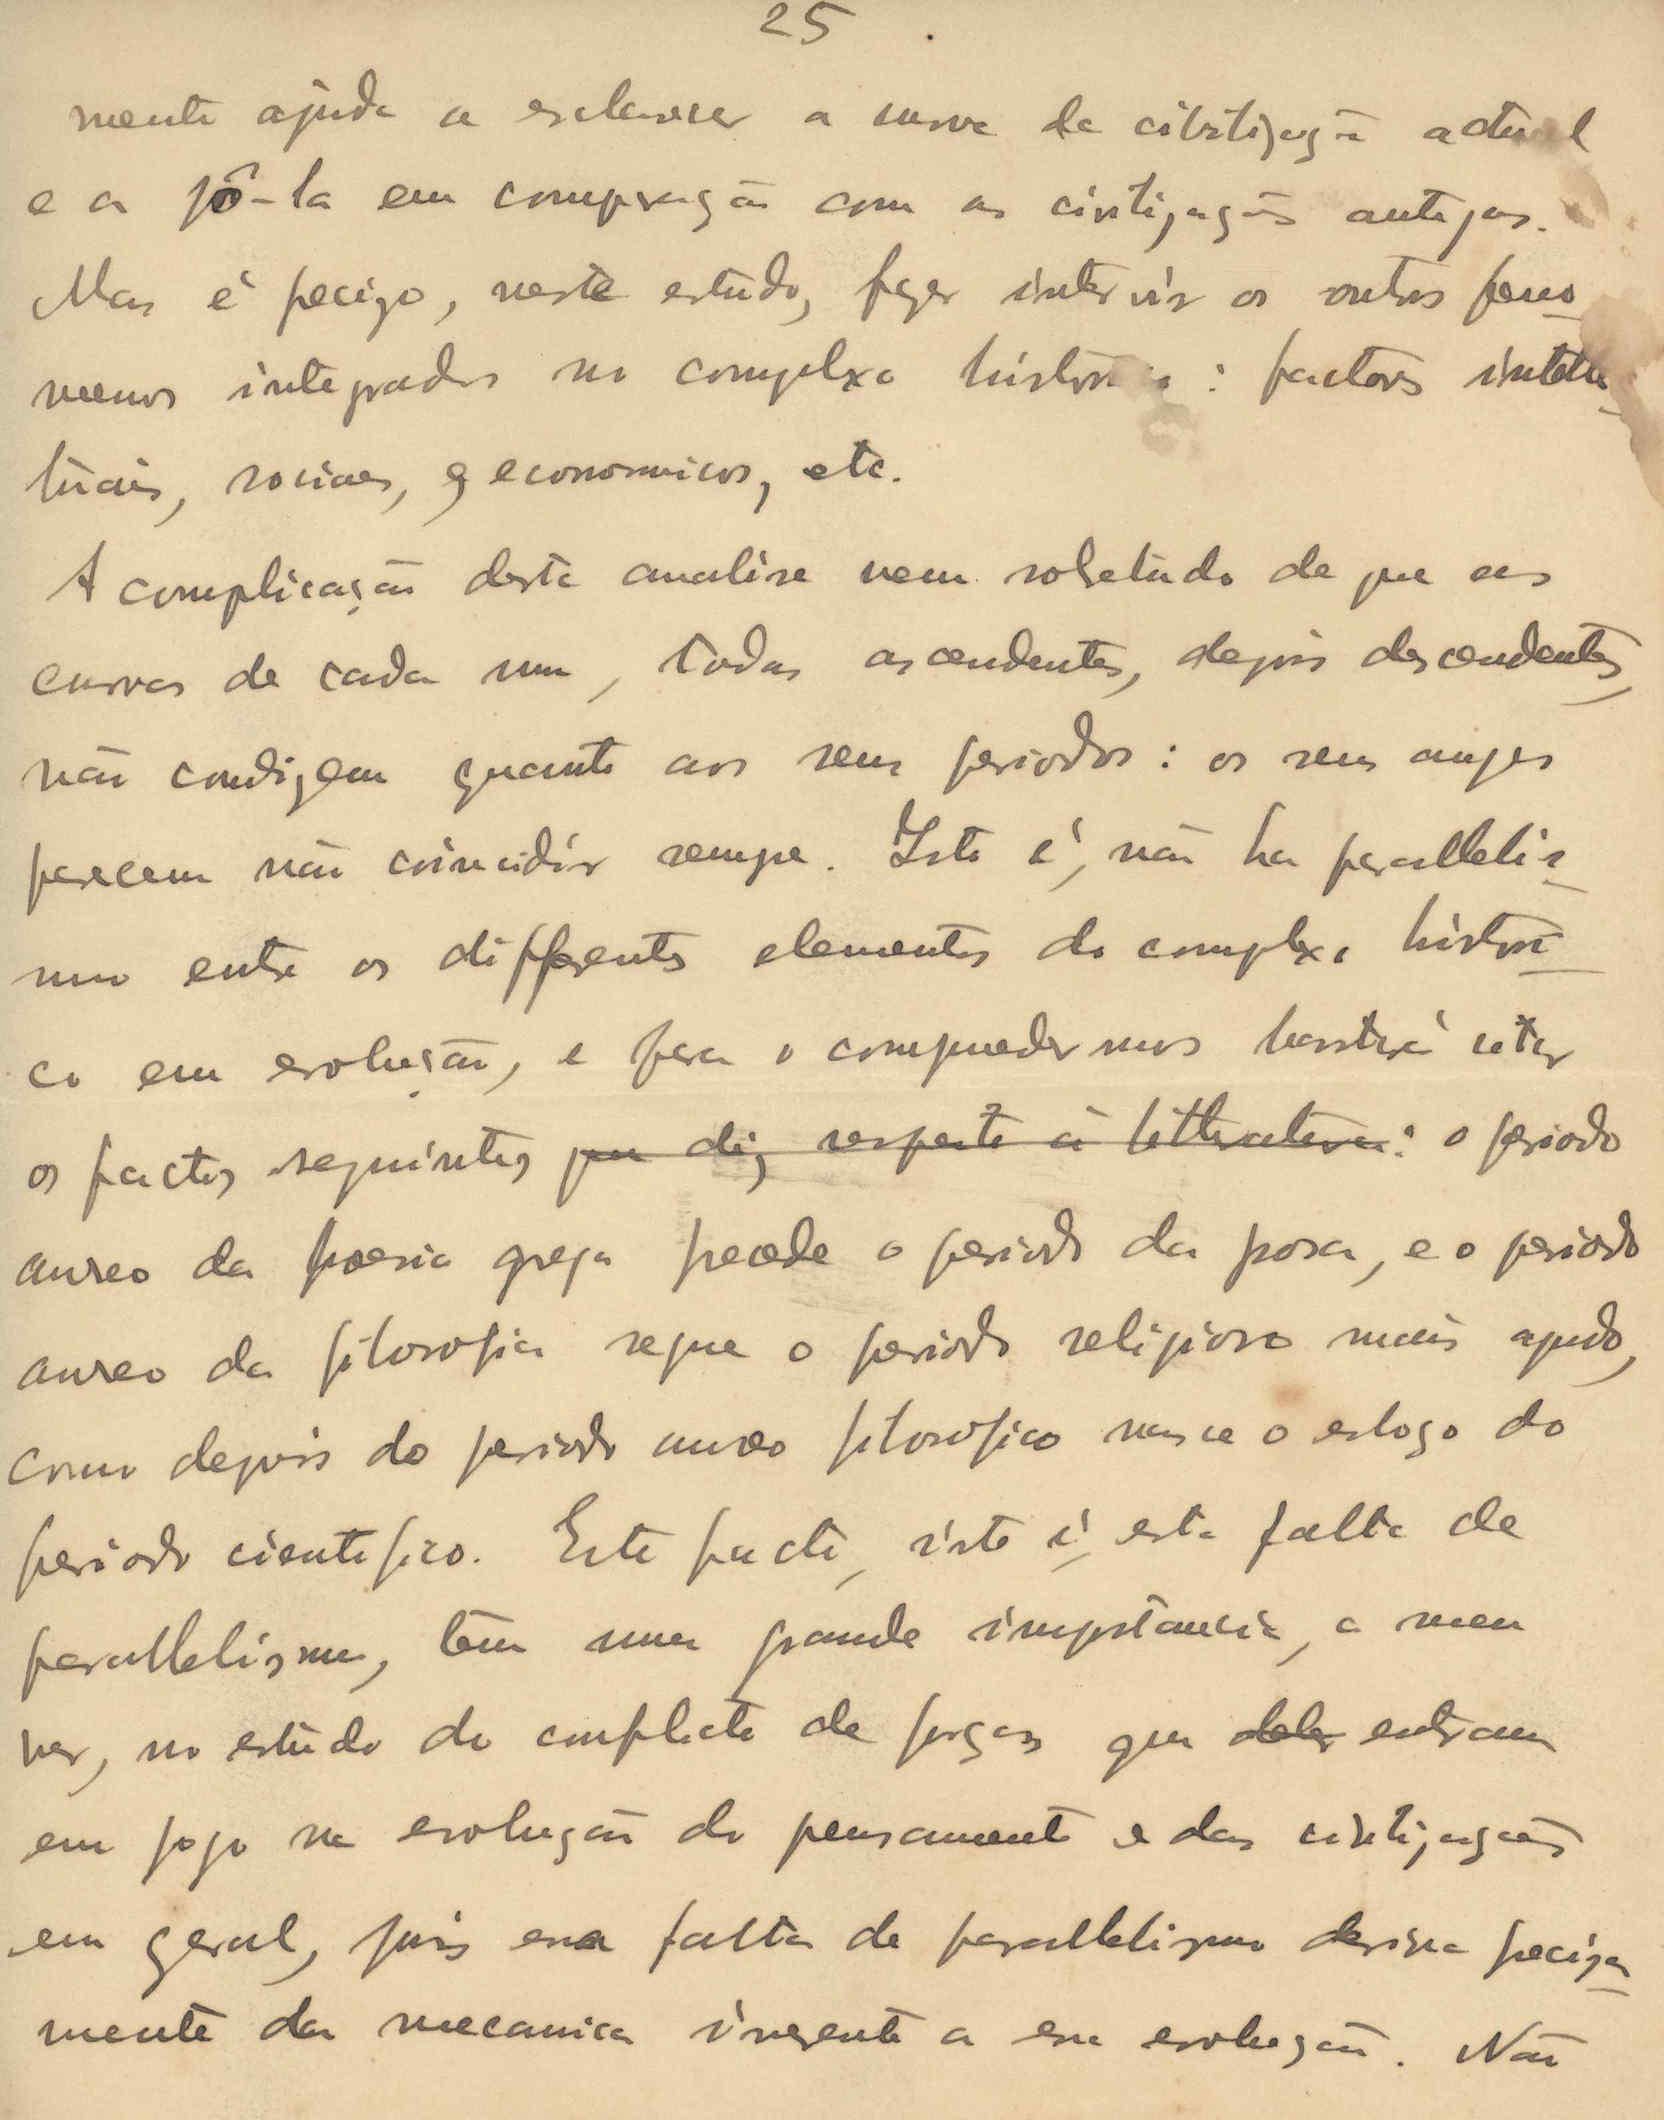 25
mente ajuda a esclarecer a curva da civilização actual
e a pô-la em comparação com as civilizações antigas.
Mas é precizo, neste estudo, fazer intervir os outros feno-
menos integrados no complexo historico: factores intelle-
tuais, sociaes, economicos, etc.
A complicação desta analise vem sobretudo de que as
curvas de cada um, todas ascendentes, depois descendentes,
não condizem quanto aos seus periodos: os seus auges
parecem não coincidir sempre. Isto é, não ha parallelis-
mo entre os differentes elementos do complexo histori-
co em evolução, e para o compreendermos bastará citar
os factos seguintes que diz respeito à litteratura: o periodo
aureo da poesia grega precede o periodo da prosa, e o periodo
aureo da filosofia segue o periodo religioso mais agudo,
como depois do periodo aureo filosofico nasce o esboço do
periodo cientifico. Este facto, isto é, esta falta de
parallelismo, tem uma grande importancia, a meu
ver, no estudo do conflicto de forças que entram
em jogo na evolução do pensamento e das civilizações
em geral, pois essa falta de parallelismo deriva preciza-
mente da mecanica inerente a essa evolução. Não